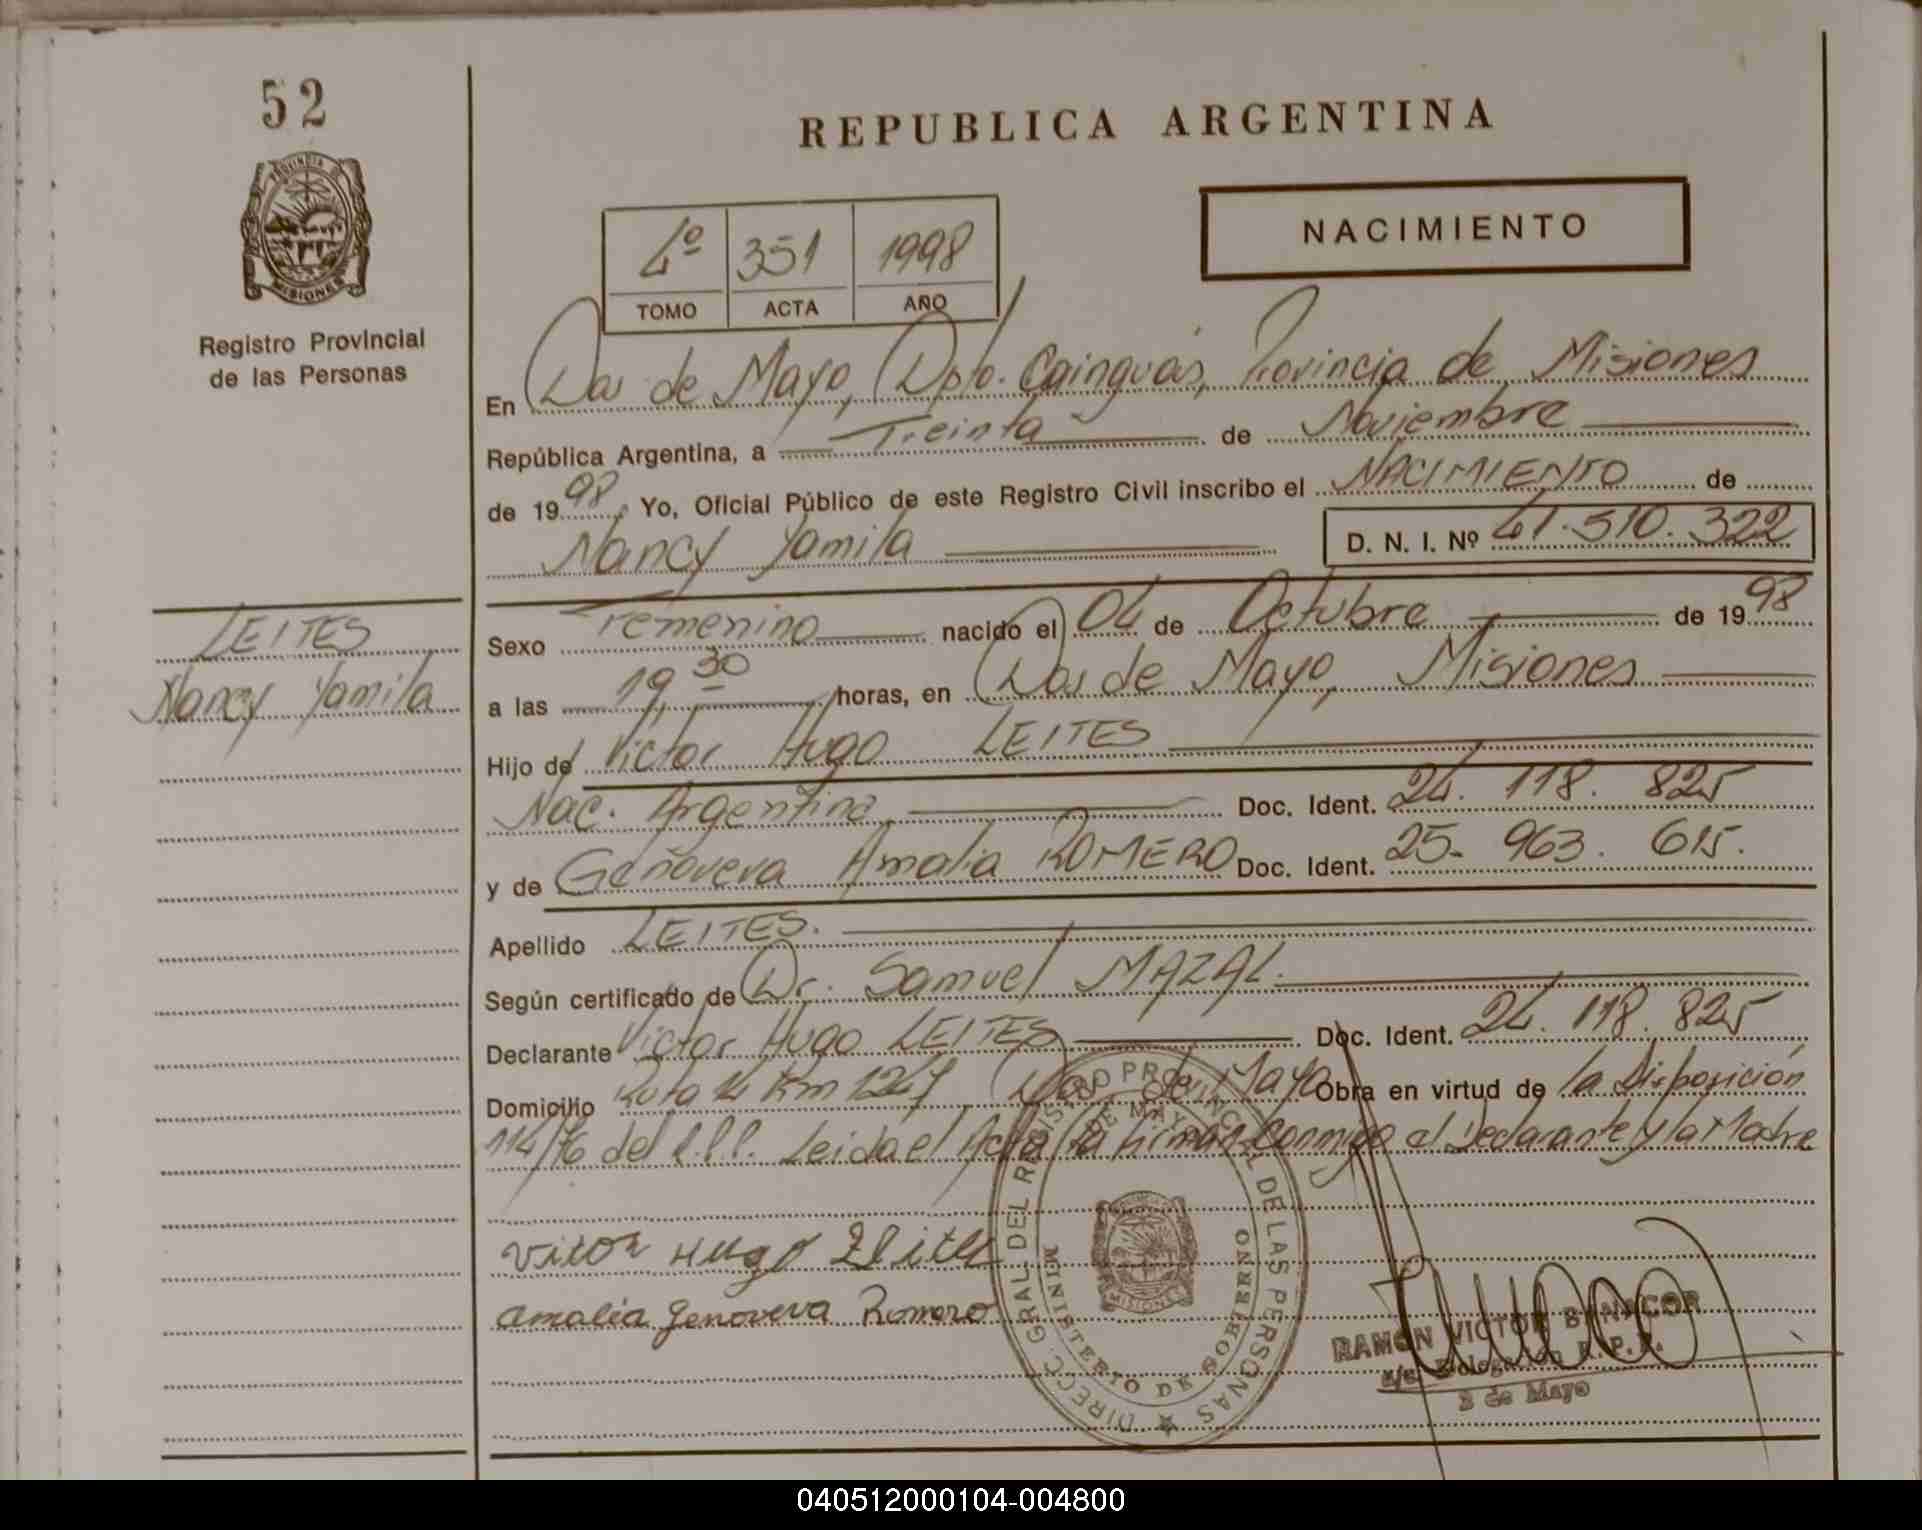 52
PROVINCIA DE
MISIONES
Registro Provincial
de las Personas
LEITES
Nancy Yamila
REPUBLICA ARGENTINA
NACIMIENTO
4º 351 1998
TOMO ACTA AÑO
En Dos de Mayo, Dpto. Cainguás, Provincia de Misiones
República Argentina, a Treinta de Noviembre
de 1998, Yo, Oficial Público de este Registro Civil inscribo el NACIMIENTO de
Nancy Yamila D. N. I. Nº 41.510.322
Sexo Femenino nacido el 04 de Octubre de 1998
a las 19,30 horas, en Dos de Mayo, Misiones
Hijo de Victor Hugo LEITES
Nac. Argentina Doc. Ident. 24. 118. 825
y de Genoveva Amalia ROMERO Doc. Ident. 25. 963. 615.
Apellido LEITES.
Según certificado de Dr. Samuel MAZAL.
Declarante Victor Hugo LEITES Doc. Ident. 24. 118. 825
Domicilio Ruta 14 Km 1247 Dos de Mayo Obra en virtud de la Disposición
114/76 del Leida el Acta la firman conmigo el Declarante y la Madre
Vitor Hugo
Amalia Genoveva Romero
DIRECC. GRAL. DEL REGISTRO PROVINCIAL DE LAS PERSONAS
MINISTERIO DE GOBIERNO
DE MAYO
MISIONES
RAMON VICTOR
Delegación R. P. P.
2 de Mayo
040512000104-004800